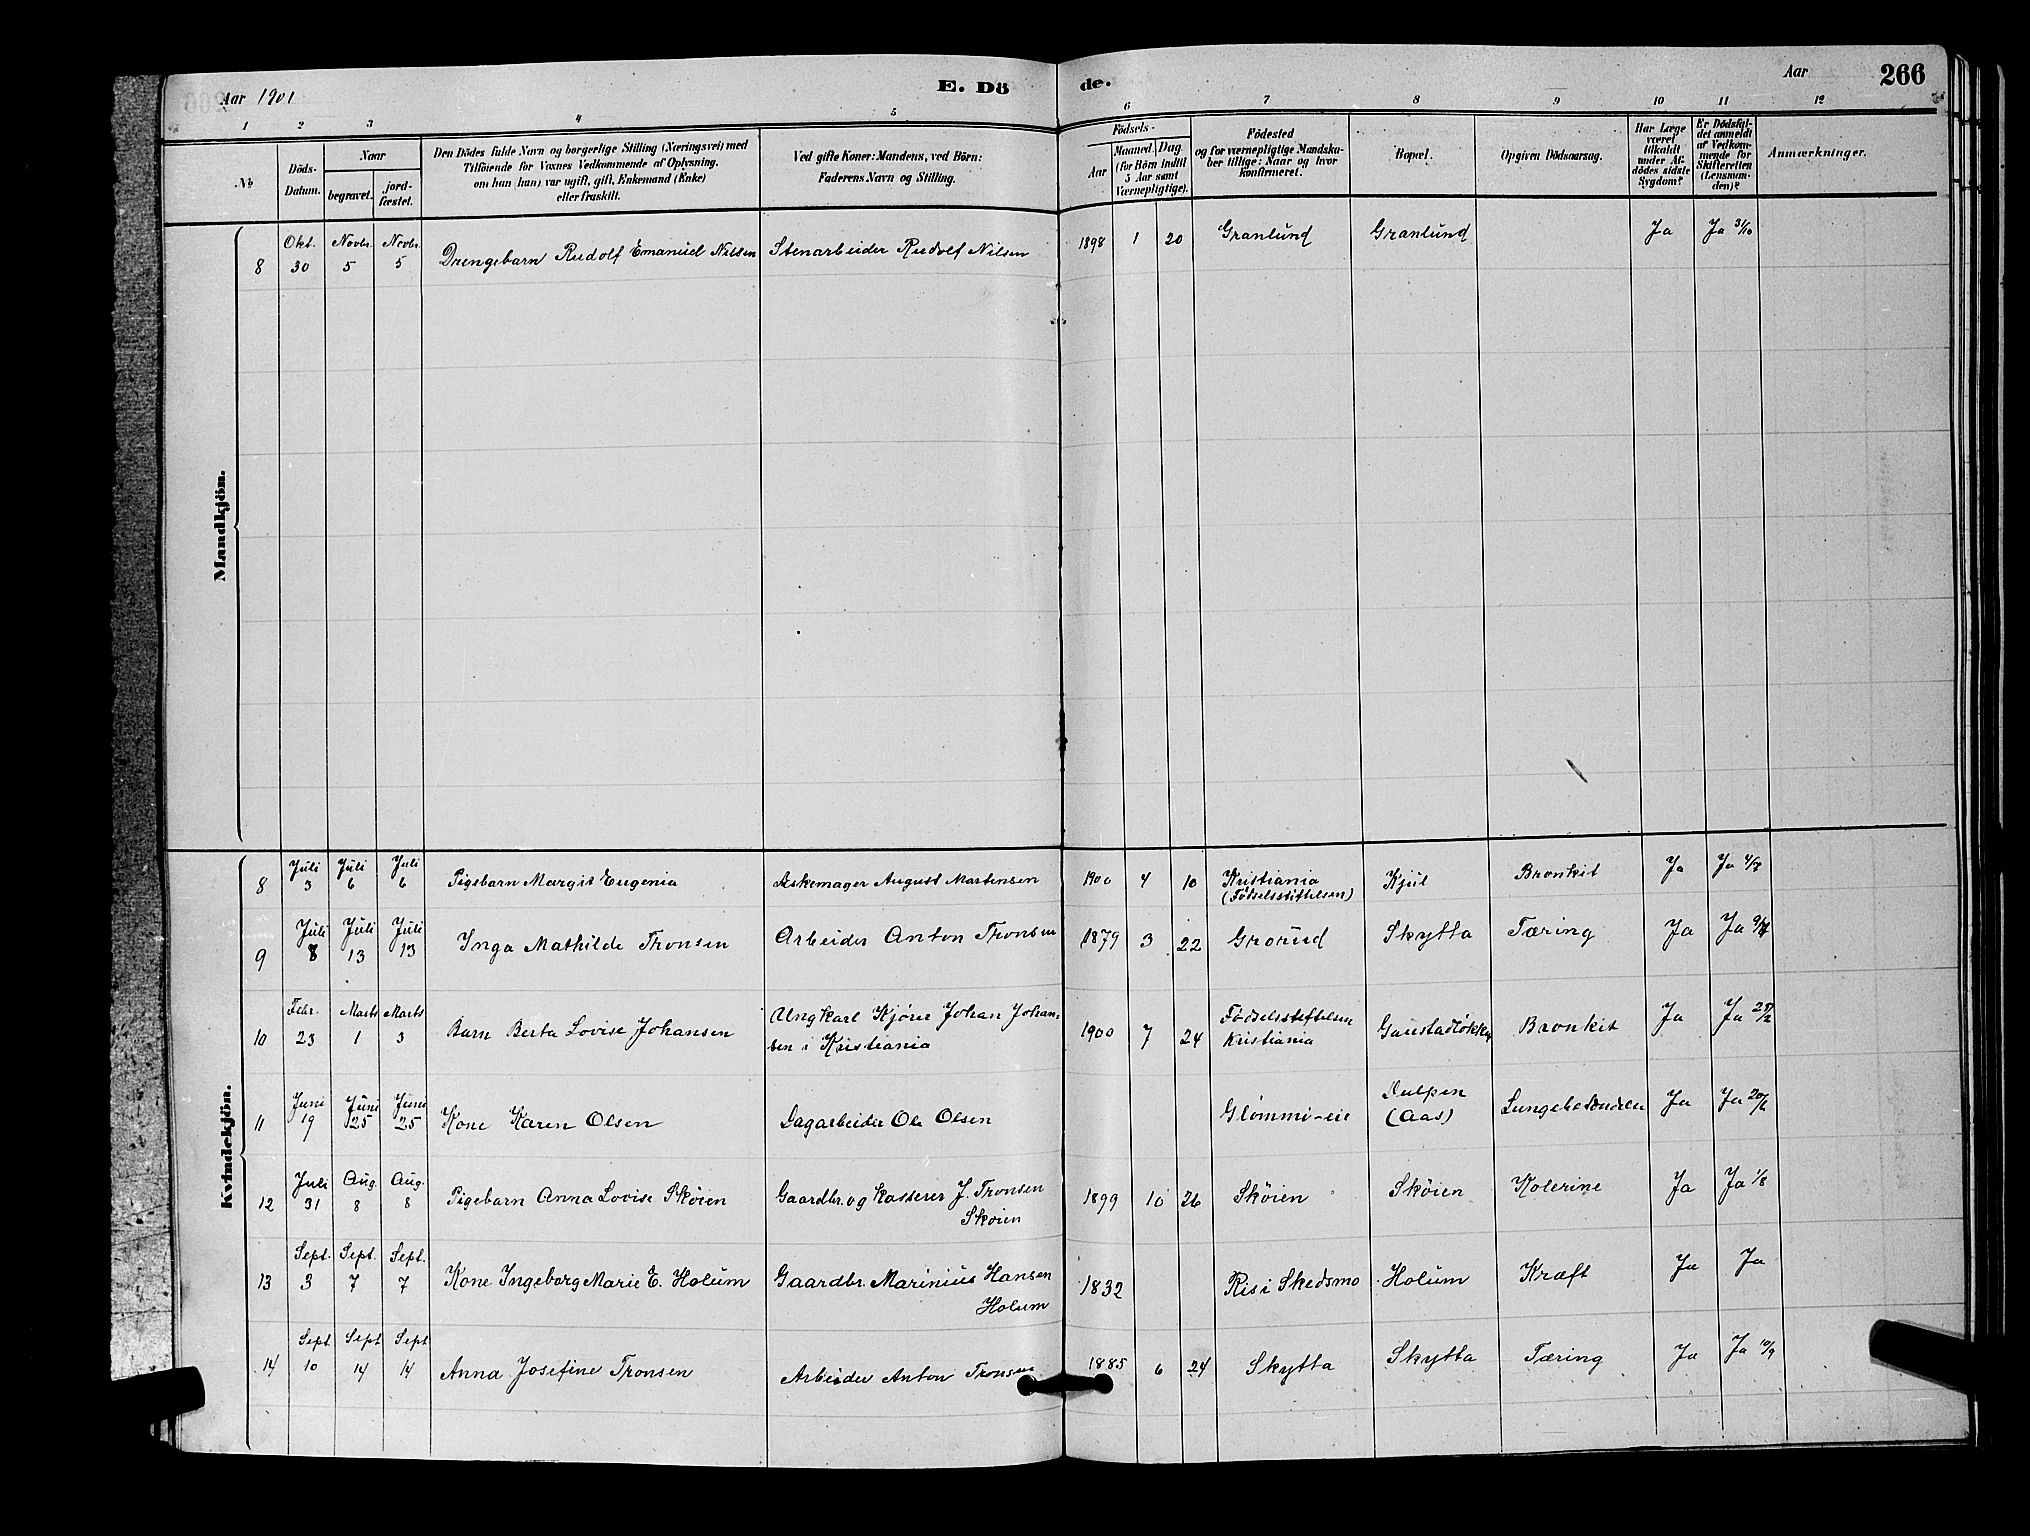 Aar 1901 E. Dö de. Aar 266
1 2 3 4 5 6 7 8 9 10 11 12
№
Döds-Datum.
Naar
begravet.
jord-fæstet.
Den Dödes fulde Navn og borgerlige Stilling (Næringsvei) med
Tilföiende for Voxnes Vedkommende af Oplysning,
om han (hun) var ugift, gift, Enkemand (Enke)
eller fraskilt.
Ved gifte Koner: Mandens, ved Börn:
Faderens Navn og Stilling.
Födsels-
Aar
Maaned. Dag
(for Börn indtil
5 Aar samt
Værnepligtige).
Födested
og for værnepligtige Mandska-
ber tillige: Naar og hvor
konfirmeret.
Bopæl.
Opgiven Dödsaarsag.
Har Læge
været
tilkaldt
under Af-
dödes sidste
Sygdom?
Er Dödsfal-
det anmeldt
af Vedkom-
mende for
Skifteretten
(Lensman-
den)?
Anmærkninger.
Mandkjön.
8 Okt. 30 Novbr. 5 Novbr. 5 Drengebarn Rudolf Emanuel Nilsen Stenarbeider Rudolf Nilsen 1898 1 20 Granlund Granlund Ja Ja 31/10
Kvindekjön.
8 Juli 3 Juli 6 Juli 6 Pigebarn Margit Eugenia Æskemager August Martinsen 1900 4 10 Kristiania Kjul Bronkit Ja Ja 4/7
(Fødselsstiftelsen)
9 Juli 8 Juli 13 Juli 13 Inga Mathilde Tronsen Arbeider Anton Tronsen 1879 3 22 Grorud Skytta Tæring Ja Ja 9/7
10 Febr. 23 Marts 1 Marts 3 Barn Berta Lovise Johansen Ungkarl Kjører Johan Johan-
sen i Kristiania 1900 7 24 Fødselsstiftelsen
Kristiania Gaustadløkken Bronkit Ja Ja 25/2
11 Juni 19 Juni 25 Juni 25 Kone Karen Olsen Dagarbeider Ole Olsen Glømmi-eie
(Aas) Ja Ja 20/6
12 Juli 31 Aug. 8 Aug. 8 Pigebarn Anna Lovise Skøien Gaardbr. og kasserer J. Tronsen
Skøien 1899 10 26 Skøien Skøien Kolerine Ja Ja 1/8
13 Sept. 3 Sept. 7 Sept. 7 Kone Ingeborg Marie E. Holum Gaardbr. Marinius Hansen
Holum 1832 Ris i Skedsmo Holum Kræft Ja Ja
14 Sept 10 Sept 14 Sept 14 Anna Josefine Tronsen Arbeider Anton Tronsen 1885 6 24 Skytta Skytta Tæring Ja Ja 10/9